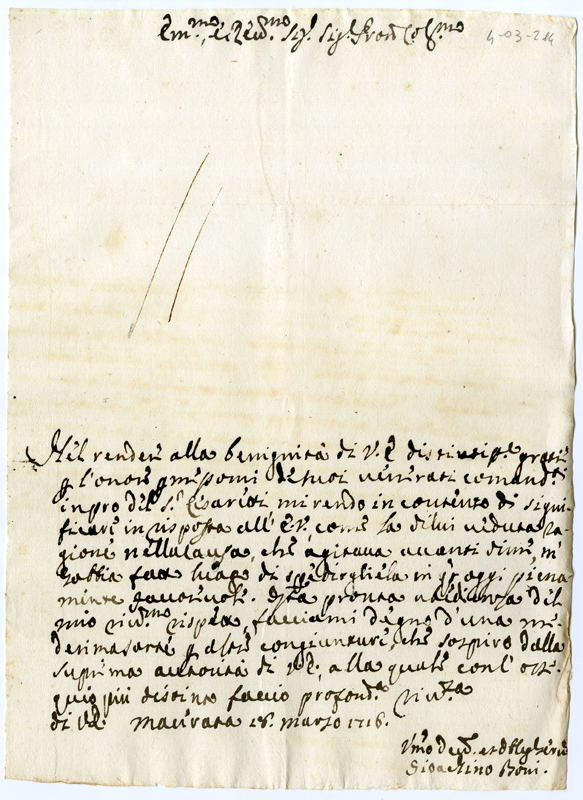 Em.mo, e Reu.mo Sig.r Sig.r Pron Col.mo
4-03-214
Nel rendere alla benignità di V.E. distintis.e grazie
p l'onore de suoi uenerati comand.ti
in pro del S.r Cesaretti mi rendo in contento di signi-
ficare in risposta all'E.V., come la di lui ueduta ra-
gione nella causa, che agitaua auanti di me, m'
habbia fatto luogo di spedirgliela in piena-
mente fauoreuole. pronta ubidienza del
mio riu.mo rispetto facciami degno d'una me-
desima sorte p altre congiunture, che sospiro dalla
suprema autorità di V.E., alla quale con l'osse-
quio più distinto faccio profond.a riu.za
di V.E. Macerata 18. marzo 1716.
Vmo Deu.o et Obl
Gioachino Boni.